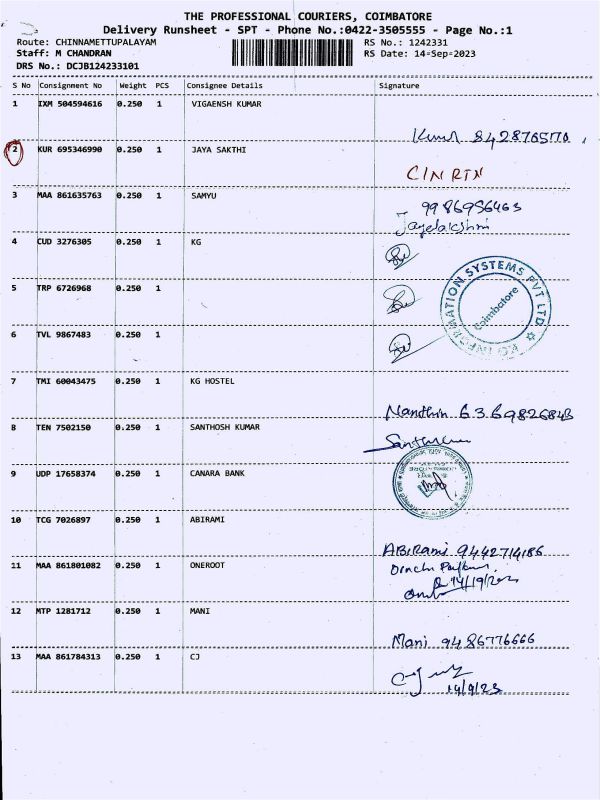 THE PROFESSIONAL COURIERS, COIMBATORE
Delivery Runsheet - SPT - Phone No.:0422-3505555 - Page No.:1
Route: CHINNAMETTUPALAYAM RS No.: 1242331
Staff: M CHANDRAN RS Date: 14-Sep-2023
DRS No.: DCJB124233101
S No Consignment No Weight PCS Consignee Details Signature
1 IXM 504594616 0.250 1 VIGAENSH KUMAR
8428765770
2 KUR 695346990 0.250 1 JAYA SAKTHI
CIN RTN
3 MAA 861635763 0.250 1 SAMYU
9986956463
Jayalakshmi
4 CUD 3276305 0.250 1 KG
5 TRP 6726968 0.250 1
KG INFORMATION SYSTEMS PVT LTD
Coimbatore
6 TVL 9867483 0.250 1
7 TMI 60043475 0.250 1 KG HOSTEL
Nandhin 6369826843
8 TEN 7502150 0.250 1 SANTHOSH KUMAR
9 UDP 17658374 0.250 1 CANARA BANK
10 TCG 7026897 0.250 1 ABIRAMI
ABIRami 9442714186
11 MAA 861801082 0.250 1 ONEROOT
12 MTP 1281712 0.250 1 MANI
Mani 9486776666
13 MAA 861784313 0.250 1 CJ
14/9/23